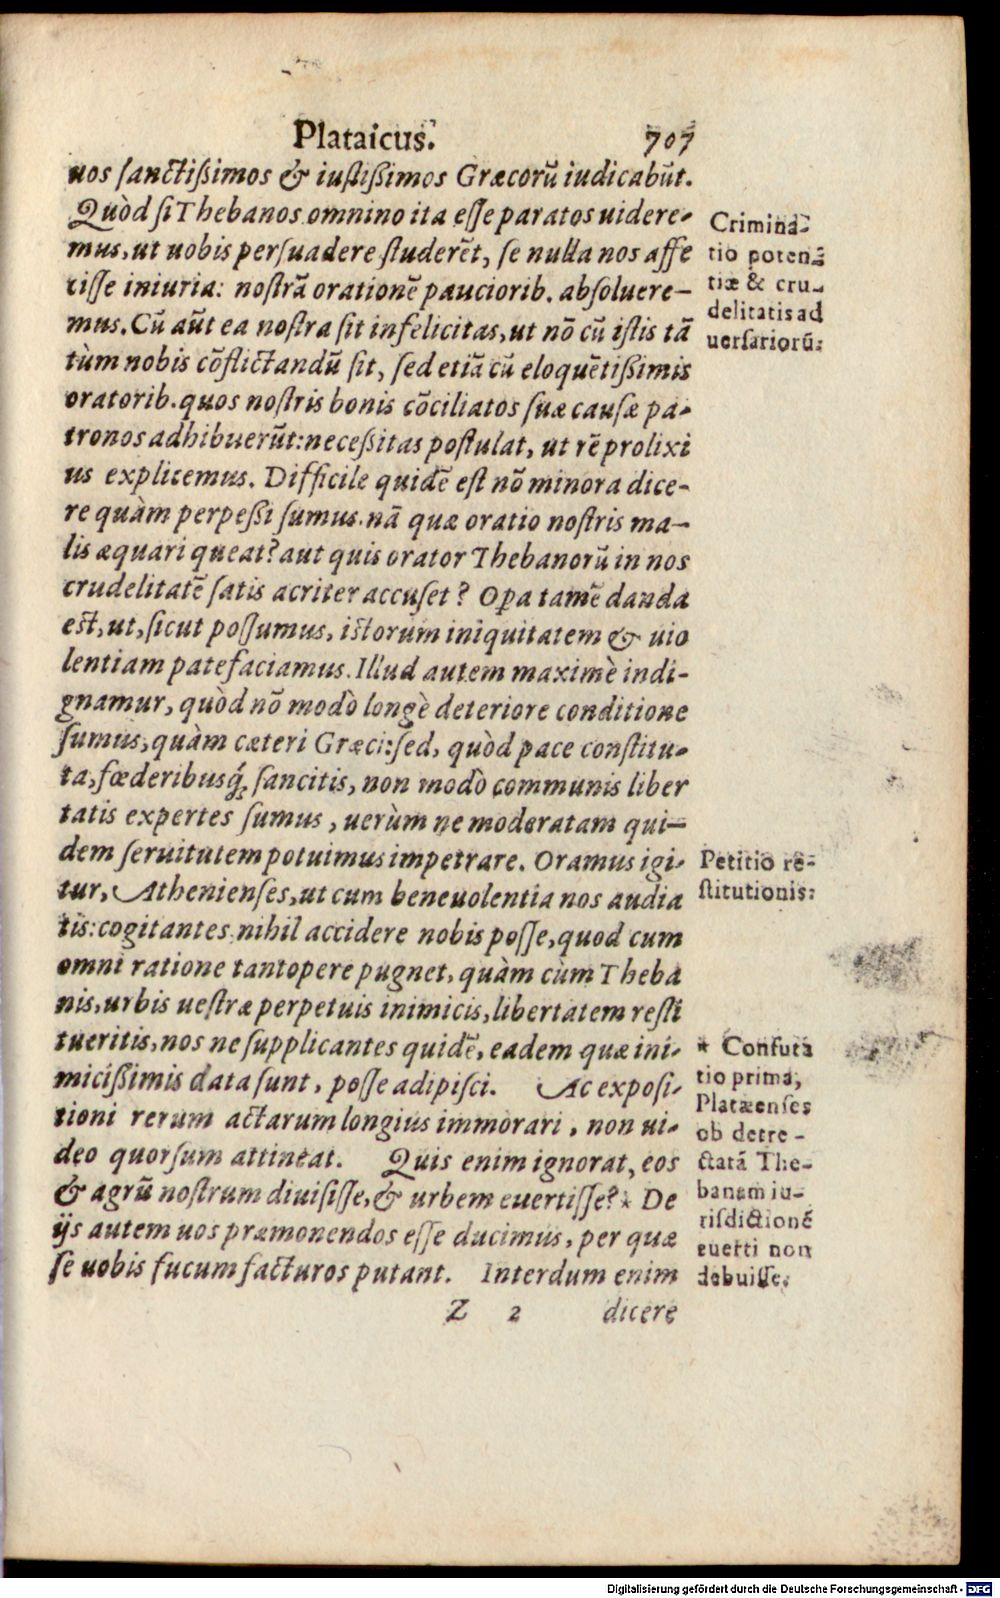 Plataicus. 707
uos ſanctißimos & iuſtißimos Græcorū iudicabūt.
Quòd ſi Thebanos omnino ita eſſe paratos uidere-
mus, ut uobis perſuadere ſtuderēt, ſe nulla nos affe
ciſſe iniuria: noſtrā orationē pauciorib. abſoluere-
mus. Cū aūt ea noſtra ſit infelicitas, ut nō cū iſtis tā
tùm nobis cōflictandū ſit, ſed etiā cū eloquētißimis
oratorib. quos noſtris bonis cōciliatos ſuæ cauſæ pa-
tronos adhibuerūt: neceßitas poſtulat, ut rē prolixi
us explicemus. Difficile quidē eſt nō minora dice-
re quàm perpeßi ſumus. nā quæ oratio noſtris ma-
lis æquari queat? aut quis orator Thebanorū in nos
crudelitatē ſatis acriter accuſet? Opa tamē danda
eſt, ut, ſicut poſſumus, iſtorum iniquitatem & uio
lentiam patefaciamus. Illud autem maximè indi-
gnamur, quòd nō modò longè deteriore conditione
ſumus, quàm cæteri Græci: ſed, quòd pace conſtitu-
ta, fœderibusq́; ſancitis, non modò communis liber
tatis expertes ſumus, uerùm ne moderatam qui-
dem ſeruitutem potuimus impetrare. Oramus igi-
tur, Athenienſes, ut cum beneuolentia nos audia
tis: cogitantes nihil accidere nobis poſſe, quod cum
omni ratione tantopere pugnet, quàm cùm Theba
nis, urbis ueſtræ perpetuis inimicis, libertatem reſti
tueritis, nos ne ſupplicantes quidē, eadem quæ ini-
micißimis data ſunt, poſſe adipiſci. Ac expoſi-
tioni rerum actarum longius immorari, non ui-
deo quorſum attineat. Quis enim ignorat, eos
& agrū noſtrum diuiſiſſe, & urbem euertiſſe? * De
ijs autem uos præmonendos eſſe ducimus, per quæ
ſe uobis fucum facturos putant. Interdum enim
Z 2 dicere
Crimina-
tio potentiæ
tiæ & cru-
delitatis ad
uerſariorū:
Petitio re-
ſtitutionis:
* Confuta
tio prima,
Platæenſes
ob detre-
ctatā The-
banam iu-
riſdictionē
euerti non
debuiſſe.
Digitalisierung gefördert durch die Deutsche Forschungsgemeinschaft - DFG